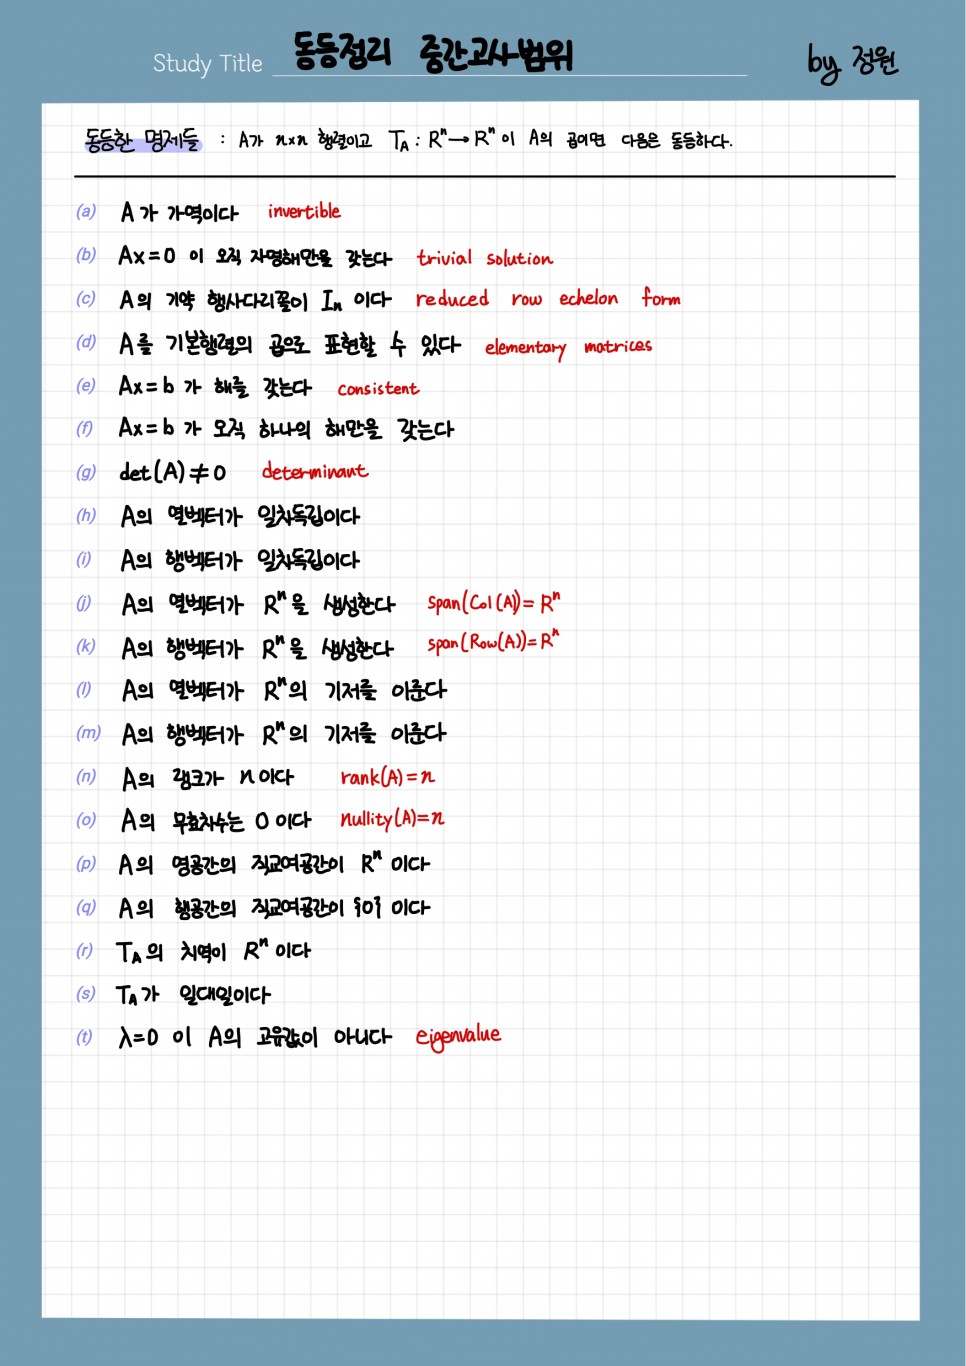 Study Title 동등정리 중간고사범위 by 정원
동등한 명제들 : A가 n×n 행렬이고 T_A : Rⁿ → Rⁿ이 A의 곱이면 다음은 동등하다.
(a) A가 가역이다 invertible
(b) Ax=0 이 오직 자명해만을 갖는다 trivial solution
(c) A의 기약 행사다리꼴이 Iₙ 이다 reduced row echelon form
(d) A를 기본행렬의 곱으로 표현할 수 있다 elementary matrices
(e) Ax=b 가 해를 갖는다 consistent
(f) Ax=b 가 오직 하나의 해만을 갖는다
(g) det(A)≠0 determinant
(h) A의 열벡터가 일차독립이다
(i) A의 행벡터가 일차독립이다
(j) A의 열벡터가 Rⁿ을 생성한다 span(Col(A))=Rⁿ
(k) A의 행벡터가 Rⁿ을 생성한다 span(Row(A))=Rⁿ
(l) A의 열벡터가 Rⁿ의 기저를 이룬다
(m) A의 행벡터가 Rⁿ의 기저를 이룬다
(n) A의 랭크가 n이다 rank(A)=n
(o) A의 무효차수는 0이다 nullity(A)=n
(p) A의 영공간의 직교여공간이 Rⁿ 이다
(q) A의 행공간의 직교여공간이 {0} 이다
(r) T_A의 치역이 Rⁿ이다
(s) T_A가 일대일이다
(t) λ=0 이 A의 고유값이 아니다 eigenvalue